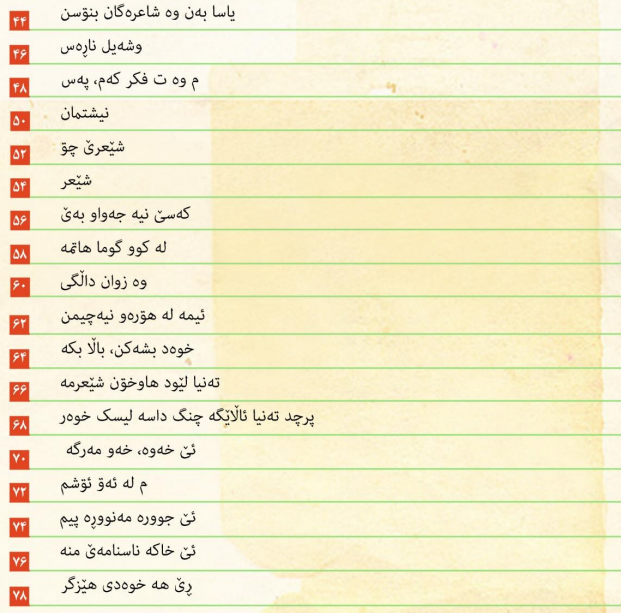 یاسا بەن وە شاعرەگان بنۆسن ۴۴
وشەیل نارِەس ۴۶
م وە ت فکر کەم، پەس ۴۸
نیشتمان ۵۰
شێعرێ چۆ ۵۲
شێعر ۵۴
کەسێ نیە جەواو بەێ ۵۶
لە کوو گوما هاتمە ۵۸
وە زوان داڵگی ۶۰
ئیمە لە هۆرەو نیەچیمن ۶۲
خوەد بشەکن، باڵا بکە ۶۴
تەنیا لێود هاوخۆن شێعرمە ۶۶
پرچد تەنیا ئاڵاێگە چنگ داسە لیسک خوەر ۶۸
ئێ خەوە، خەو مەرگە ۷۰
م لە ئەۆ ئۆشم ۷۲
ئێ جوورە مەنوورِە پیم ۷۴
ئێ خاکە ناسنامەێ منە ۷۶
رِێ هە خوەدی هێزگر ۷۸